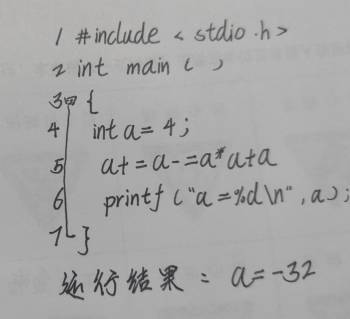 1 #include < stdio.h>
2 int main ( )
3 {
4 int a = 4;
5 a+=a-=a*a+a
6 printf ("a=%d\n", a);
7 }
运行结果: a=-32